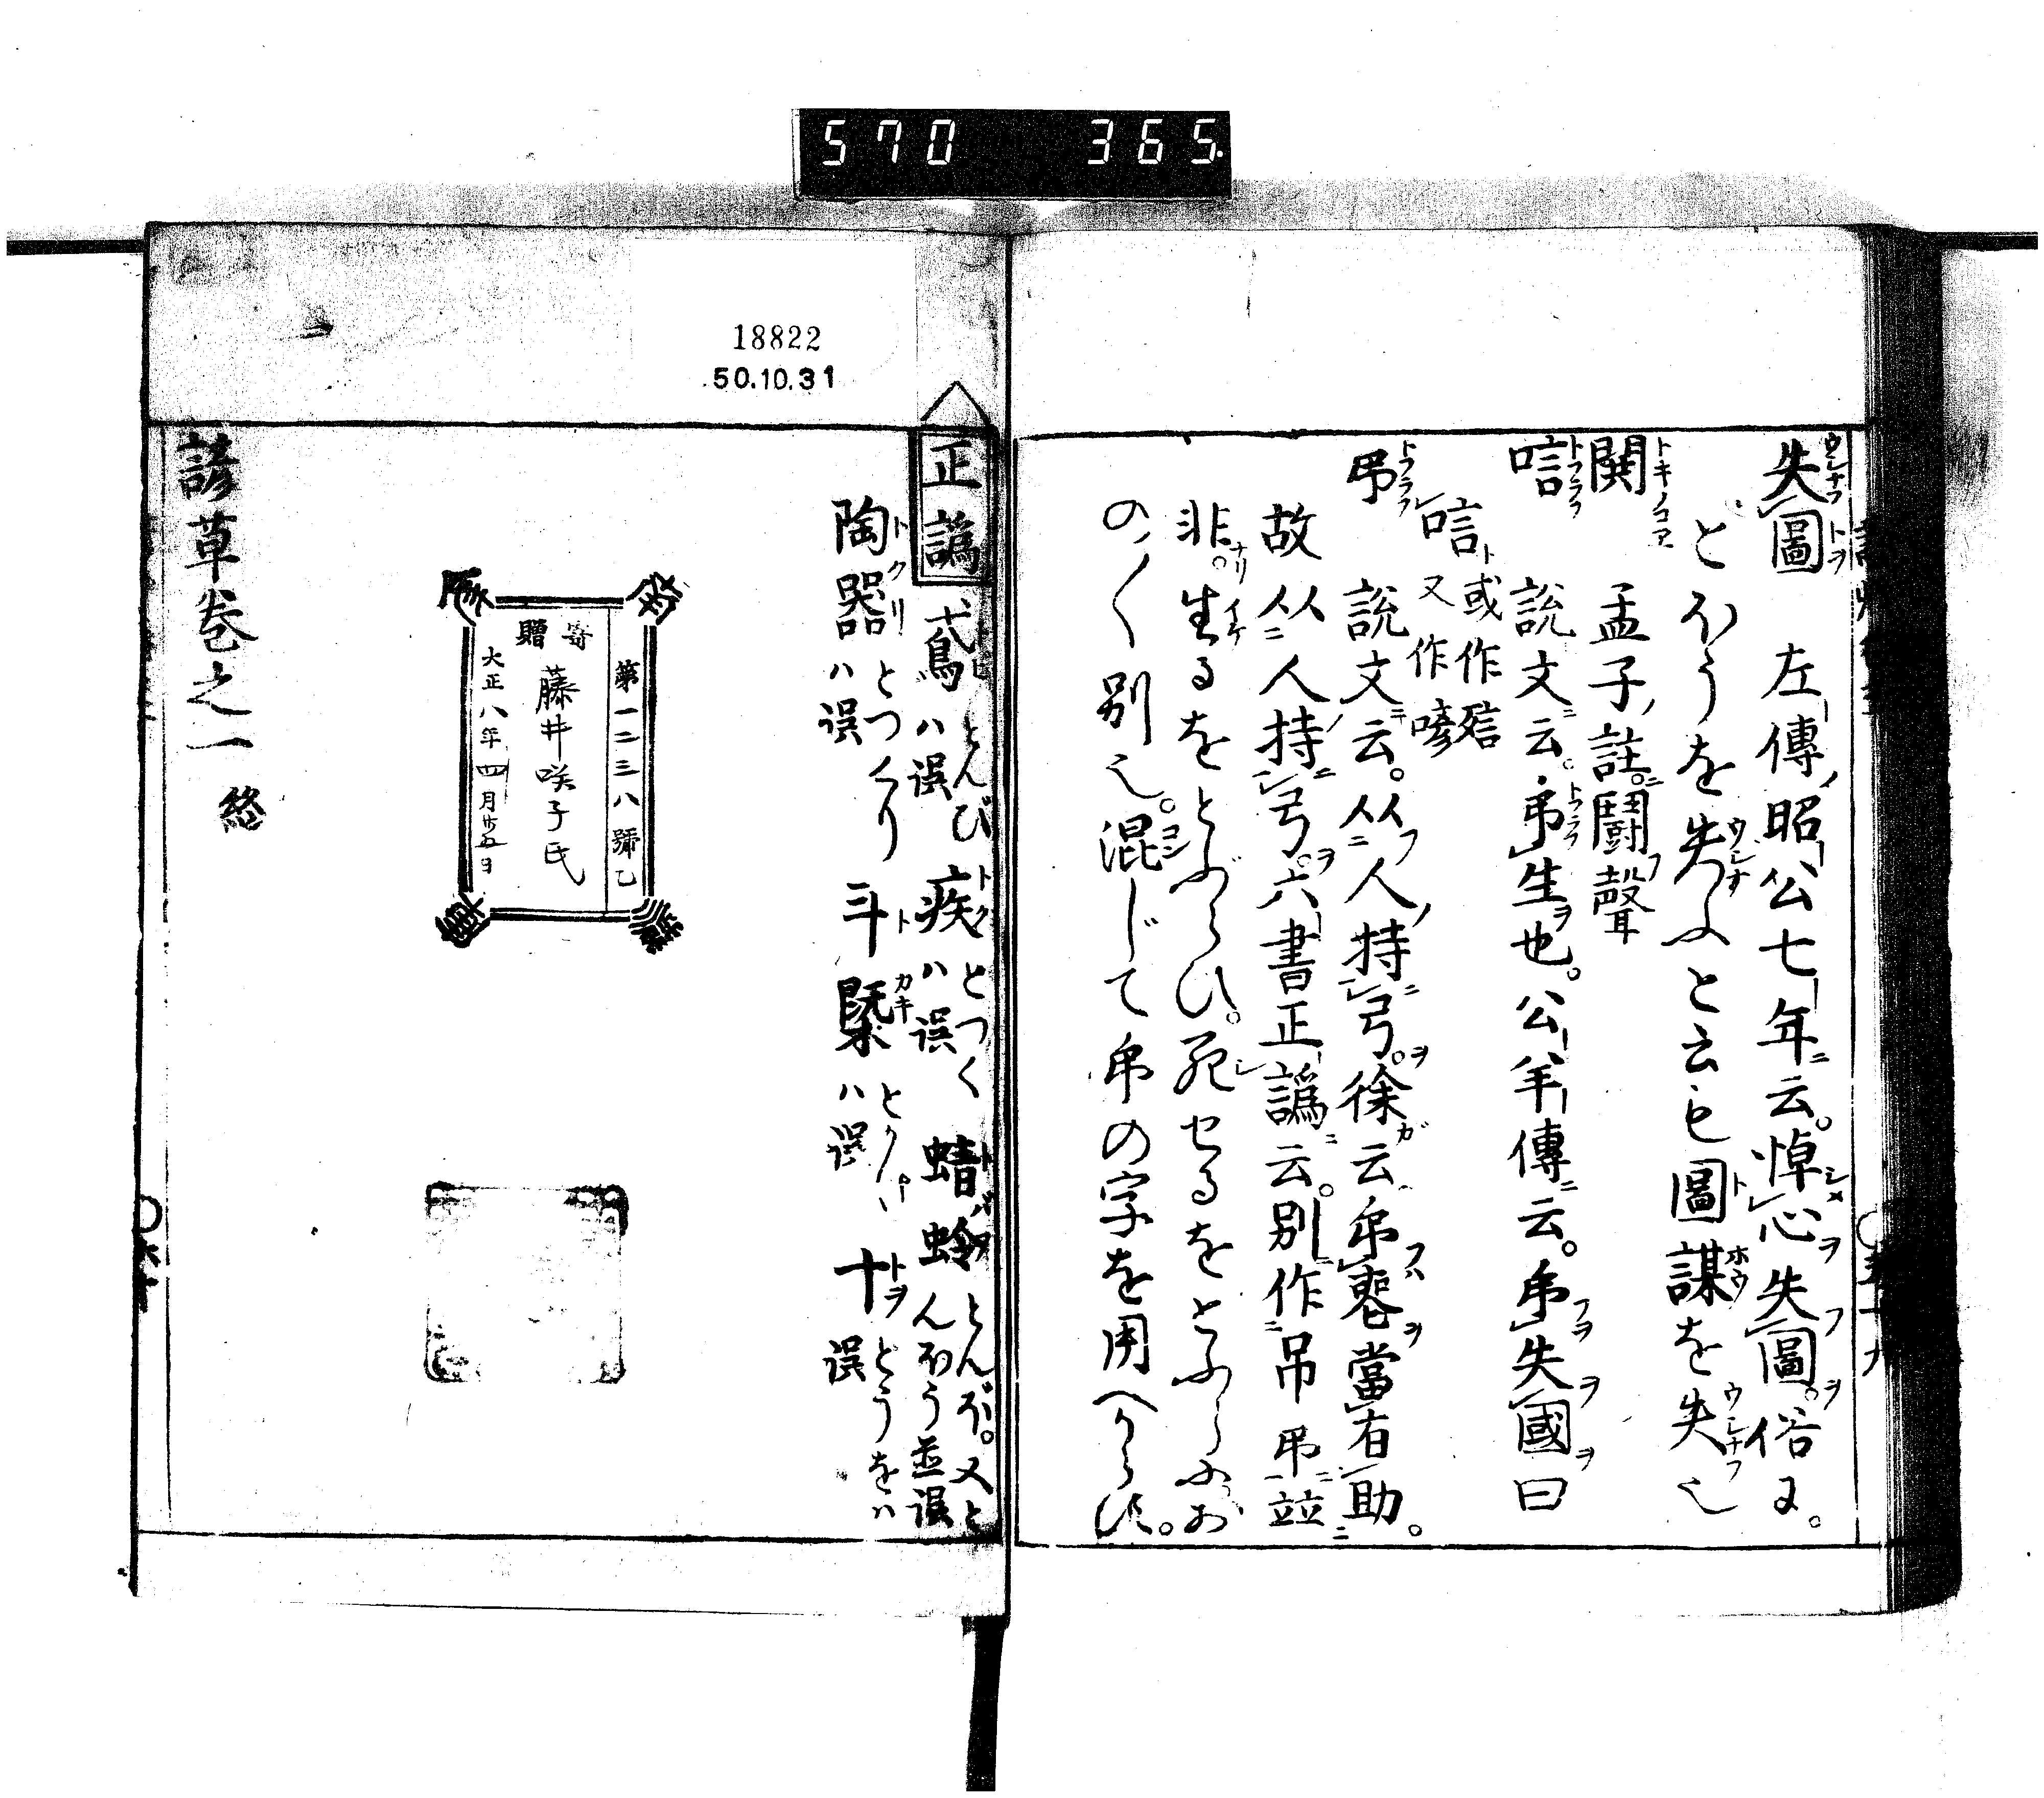 570 365
失圖 左傳昭公七年云。悼心失圖。俗に。
とほうを失ふと云も圖謀を失也
鬨 孟子註。鬪聲
唁 説文云。弔生也。公羊傳云。弔失國曰
唁 或作𧨿
又作喭
弔 説文云。从人持弓。徐云弔喪當有助。
故从人持弓。六書正譌云。別作吊弔並
非。生るをとぶらひ。死セるをとふらふお
の〱別也。混じて弔の字を用へからず。
18822
50.10.31
正譌 鳶 とんびハ誤 疾 とつくハ誤 蜻蛉 とんぼ。又とんぼう並誤
陶器 とつくりハ誤 斗槩 ハ誤 十 とうをハ誤
寄贈
第一二三八號乙
藤井咲子氏
大正八年四月廿五日
諺草巻之一 終